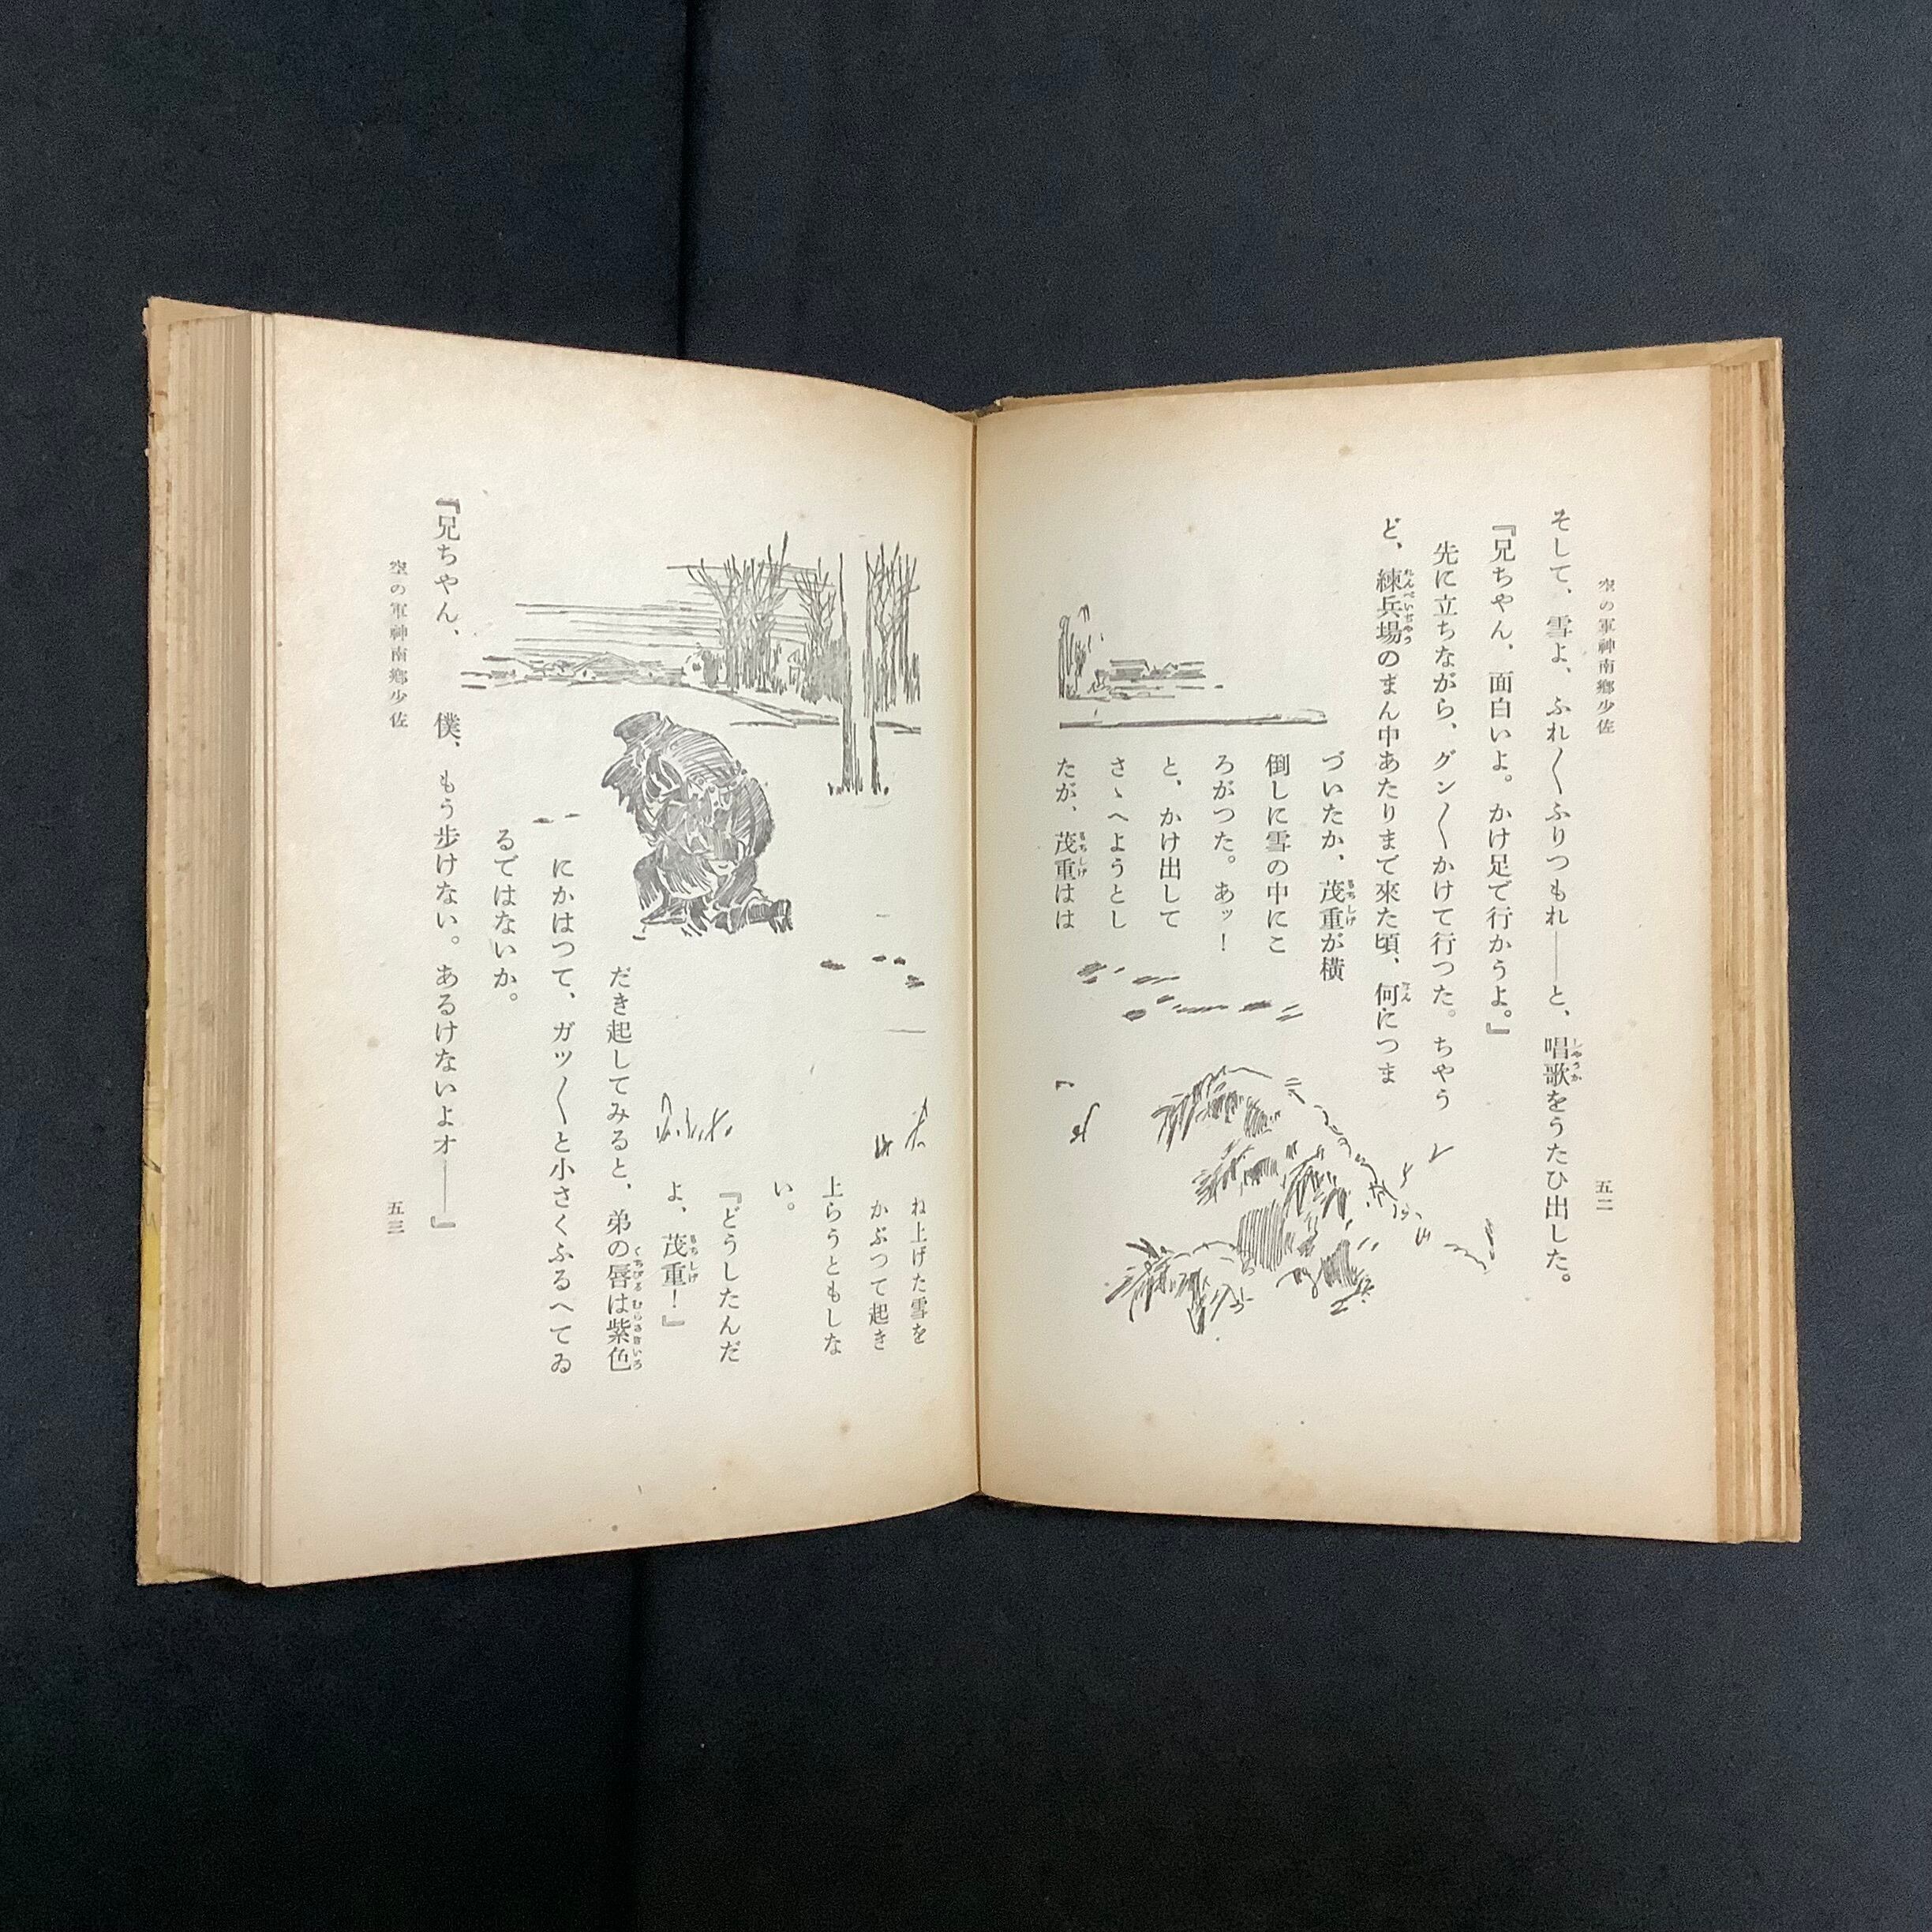 空の軍神南郷少佐
五二
そして、雪よ、ふれ〳〵ふりつもれ――と、唱歌をうたひ出した。
『兄ちやん、面白いよ。かけ足で行かうよ。』
先に立ちながら、グン〳〵かけて行つた。ちやう
ど、練兵場のまん中あたりまで來た頃、何につま
づいたか、茂重が横
倒しに雪の中にこ
ろがつた。あッ！
と、かけ出して
さゝへようとし
たが、茂重はは
ね上げた雪を
かぶつて起き
上らうともしな
い。
『どうしたんだ
よ、茂重！』
だき起してみると、弟の唇は紫色
にかはつて、ガツ〳〵と小さくふるへてゐ
るではないか。
『兄ちやん、僕、もう歩けない。あるけないよオ――』
空の軍神南郷少佐
五三